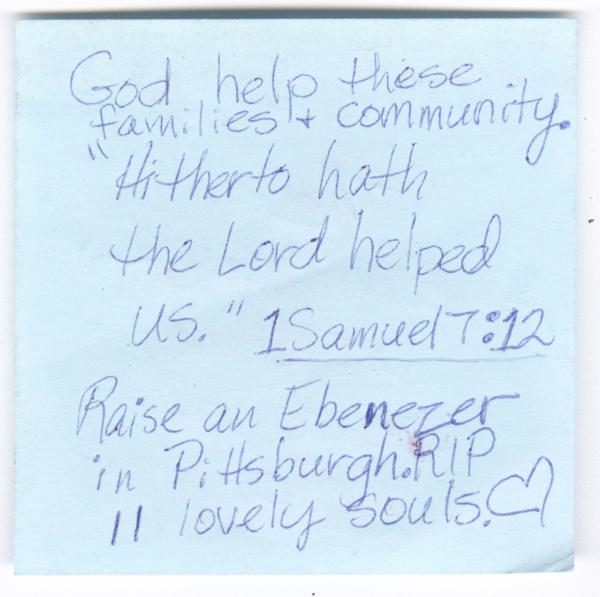 God help these
families + community.
"Hitherto hath
the Lord helped
us." 1 Samuel 7:12
Raise an Ebenezer
in Pittsburgh. RIP
11 lovely souls.♡